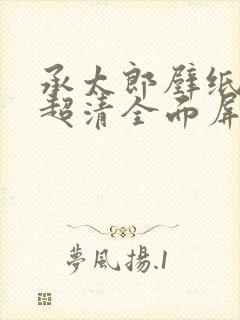 承太郎壁纸
超清全面屏
夢風揚.1